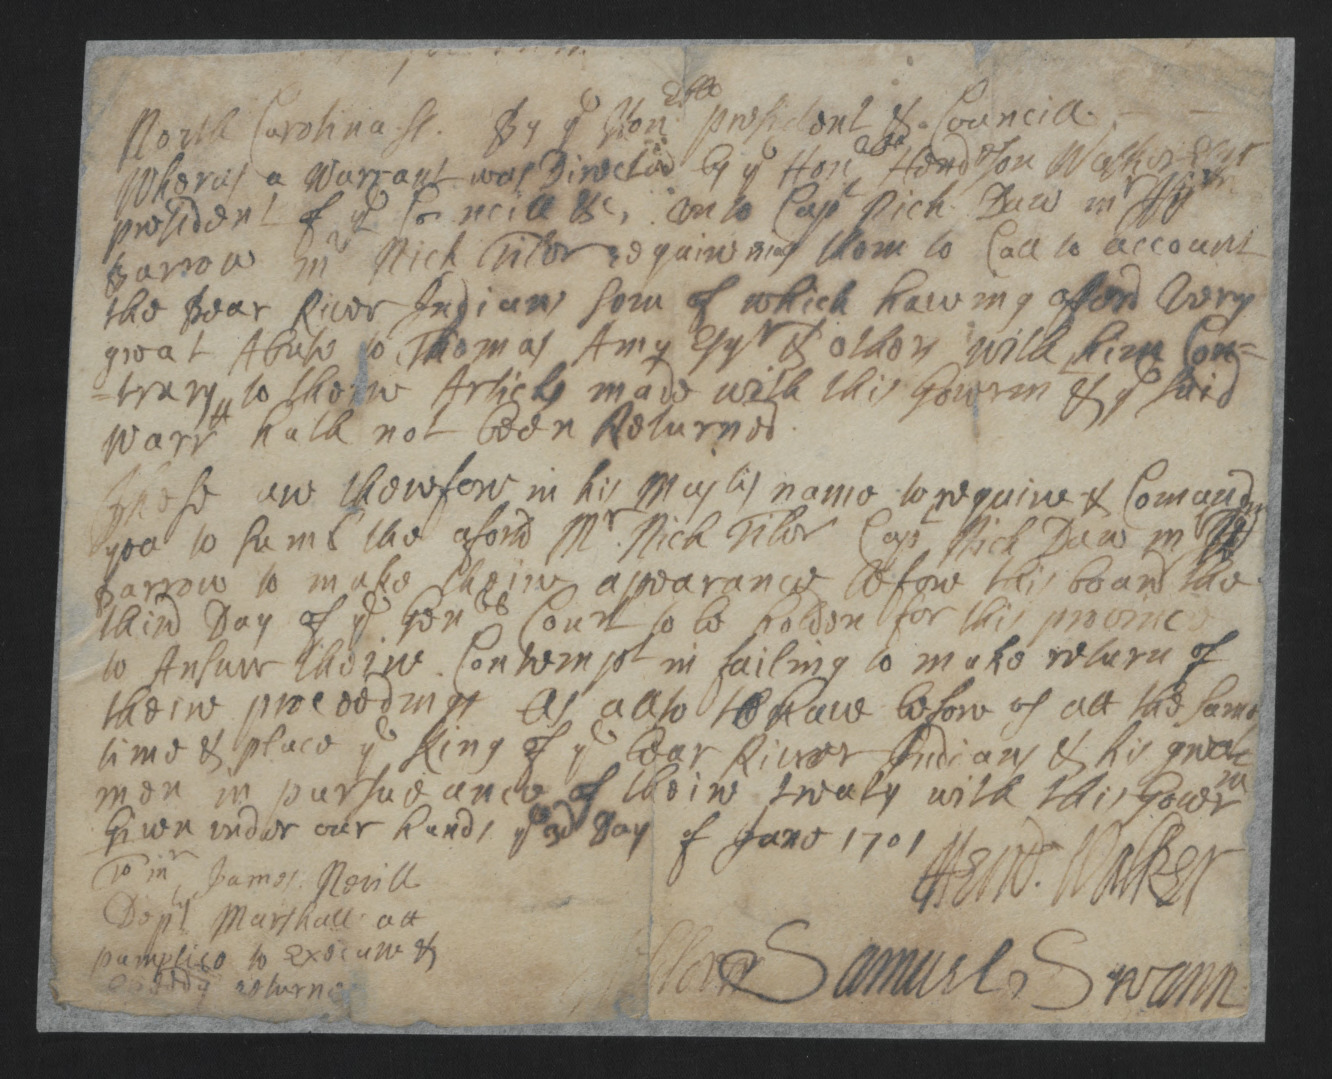 North Carolina ss. By ye Honble president & Councill
Wheras a Warrant was Directed by ye Honable Henderson Walker Esqr
president of ye Councill &c, unto Capt Rich Daw mr Wm
Barrow mr Rich Tiler requireing them to Call to account
the Bear River Indians som of which haweing offerd Very
great Abuse to Thomas Amy Esqr & others with him Con=
=trary to theire Articles made with this Goverm & ye said
Warrtt hath not been Returned
These are therefore in his Majtis name to require & Comand
you to sums the aforsd Mr. Rich Tiler Capt Rich Daw mr Wm
Barrow to make theire appearance before this board the
third Day of ye Genll Court to be holden for this province
to Answer theire Contempt in failing to make return of
theire proceedings As allso to Have before us att the same
time & place ye King of ye bear River Indians & his great
men in pursueance of theire treaty with this Goverm
Given under our hands ye 3d Day of June 1701
Hend. Walker
To mr James Nevill
Depty Marshall att
pamplico to Execute &
returne
Samuel Swann